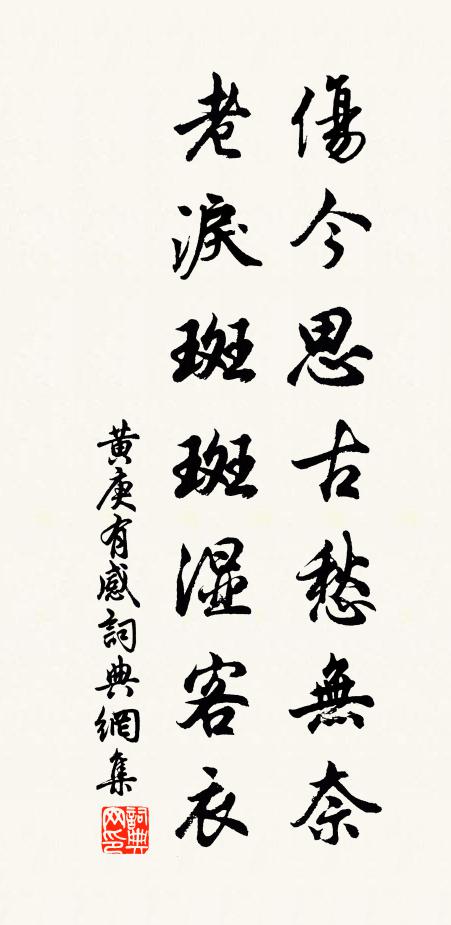 傷今思古愁無奈
老淚斑斑湿客衣
黄庚有感詞典網集
詞典网印